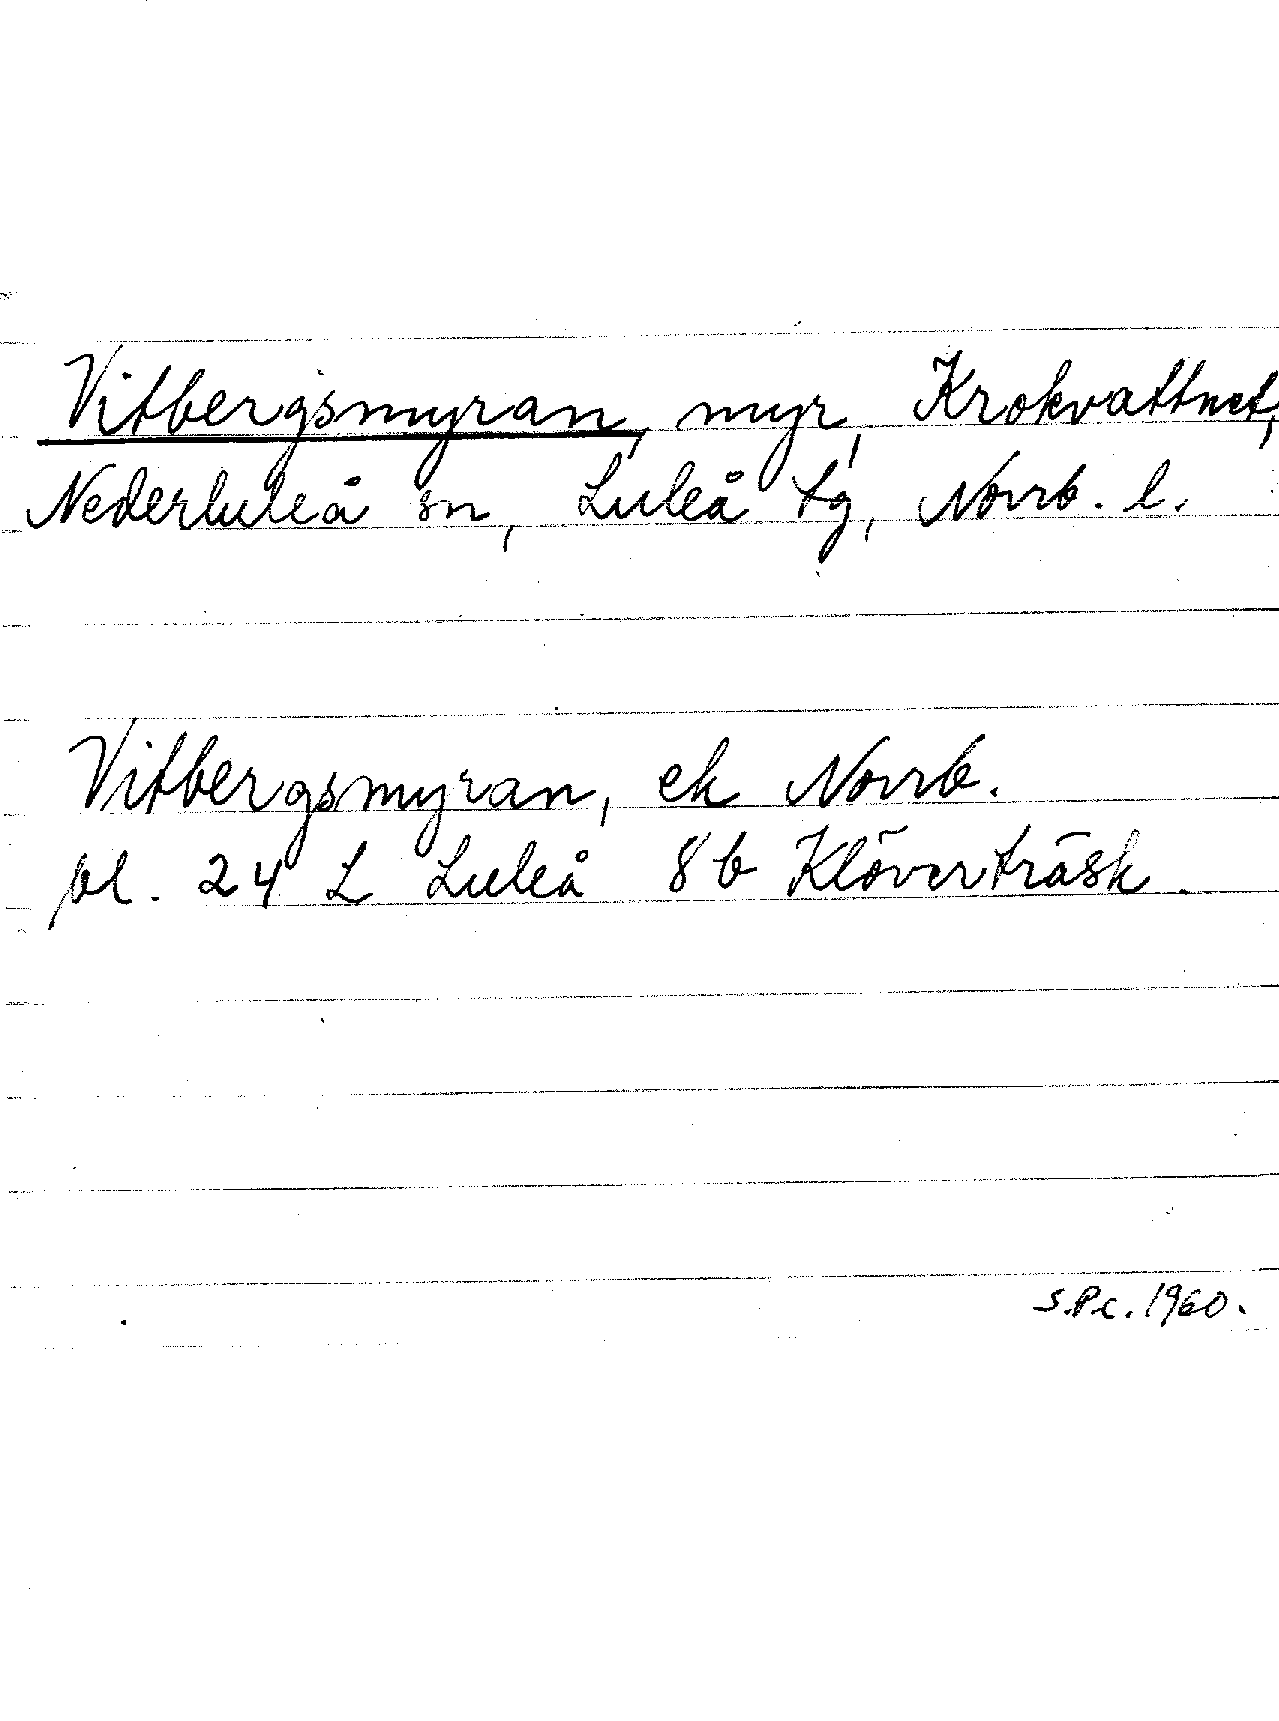 Vitbergsmyran, myr, Krokvattnet,
Nederluleå sn, Luleå tg, Norrb. l.
Vitbergsmyran, ek Norrb.
bl. 24 L Luleå 8b Klöverträsk.
S.Pc. 1960.